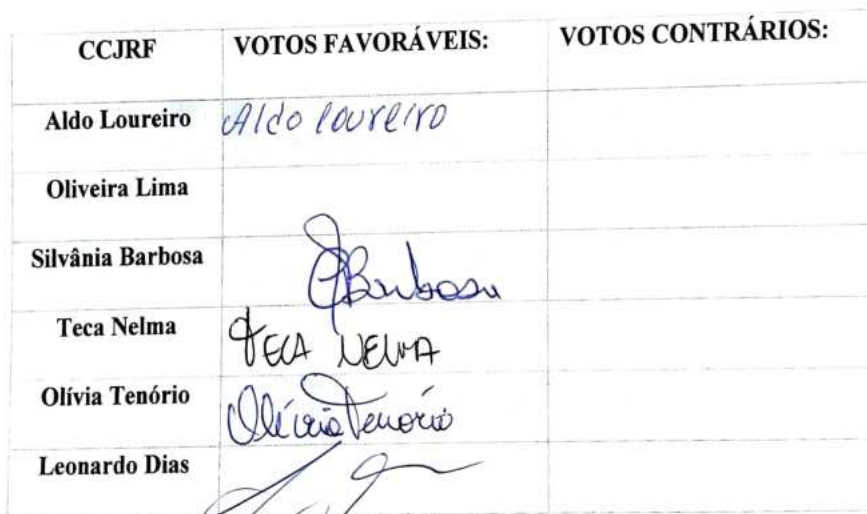 CCJRF VOTOS FAVORÁVEIS: VOTOS CONTRÁRIOS:
Aldo Loureiro Aldo loureiro
Oliveira Lima
Silvânia Barbosa Barbosa
Teca Nelma TECA NELMA
Olívia Tenório Olívia Tenório
Leonardo Dias